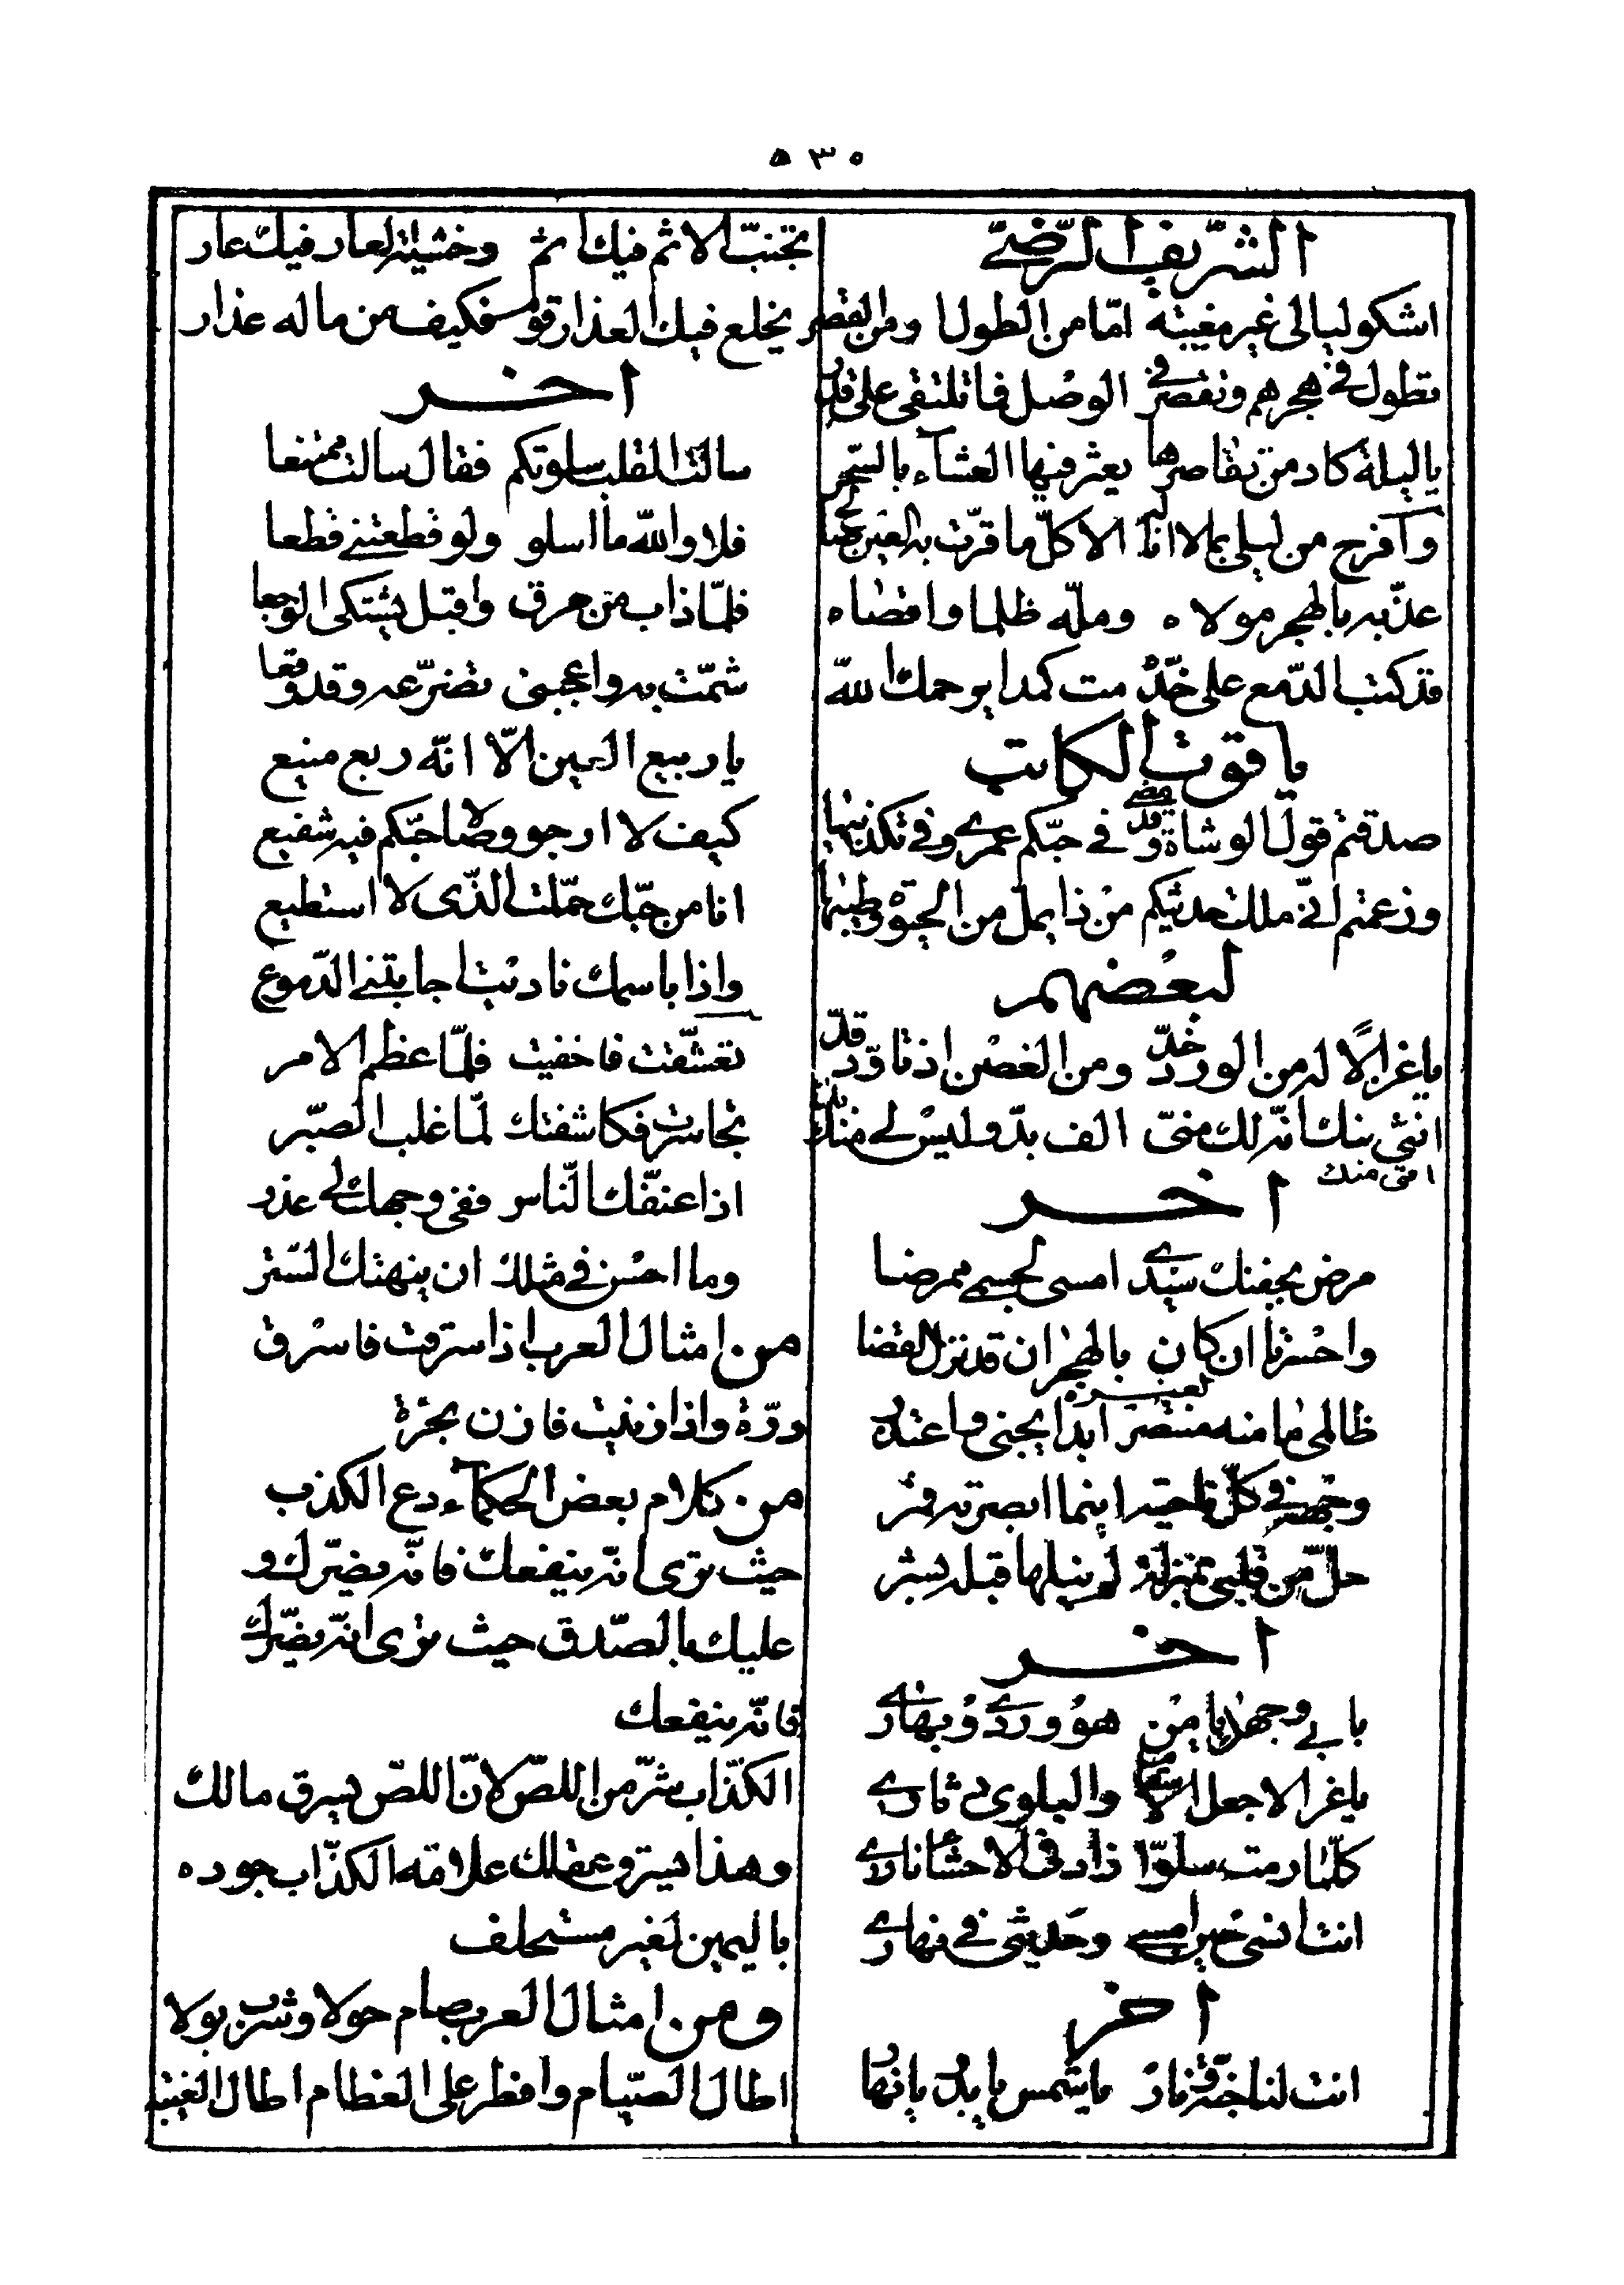 ٥٣٠
الشّريف الرّضيّ
اشكو ليالى غير مغيبته امّا من الطول او من القصر
تطول في هجرهم وتقصر في الوصل فما تلتقى على قدر
يا ليلة كاد من تقاصرها يعثر فيها العشاء بالسّحر
عذّبه بالهجر مولاه وملّه ظلما واقصاه
قد كتب الدّمع على خدّه مت كمدا يرحمك اللّه
ياقوت الكاتب
صدقتم قول الوشاة وقد مضى في حبّكم عمري وفي تكذيبها
وزعتم انّي مللت حديثكم من ذا يملّ من الحيوة وطيبها
لبعضهم
يا غزالا له من الورد خدّ ومن الغصن اذ تاوّد قدّ
اخر
مرض بجفنك سيّدي امسى لجسمي ممرضا
واحسرتا ان كان بالهجران قد نزل القضا
ظالمى ما منه منتصر ابدا يجنى واعتذر
وجهه في كلّ ناحية اينما ابصرته قمر
حلّ من قلبى بمنزلة لم ينلها قبله بشر
اخر
بابي وجهك يا من هو وردي وبهاري
يا غزالا جعل والبلوى ثاري
كلّما رمت سلوّا زاد في الاحشا ناري
انت انسى حين امسي وحديثى في نهاري
اخر
انت لنا جنّة ونار يا شمس يا بدر يا نهار
تجنّب الاثم فيك اثم وخشية العار فيك عار
يخلع فيك العذار قوم فكيف من ماله عذار
اخر
سالت القلب سلوتكم فقال سالت ممتنعا
فلا واللّه ما اسلو ولو قطعتني قطعا
فلمّا ذاب من حرق واقبل يشتكى الوجعا
شمّت به واعجبنى تضرّعه وقد وقعا
يا ربيع العين الّا انّه ربع منيع
كيف لا ارجو وصلا حبّكم فيه شفيع
انا من حبّك حمّلت الذّى لا استطيع
واذا باسمك ناديت اجابتني الدّموع
تعشّقت فاخفيت فلمّا عظم الامر
تجاسرت فكاشفتك لمّا غلب الصّبر
اذا عنّفك النّاس ففى وجهك لي عذر
وما احسن في مثلك ان ينهتك السّتر
من امثال العرب اذا سرقت فاسرق
درّة واذا زنيت فازن بحرّة
من كلام بعض الحكماء دع الكذب
حيث ترى انّه ينفعك فانّه يضرّك و
عليك بالصّدق حيث ترى انّه يضرّك
فانّه ينفعك
الكذّاب شرّ من اللصّ لانّ اللصّ يسرق مالك
وهذا يسترق عقلك علامة الكذّاب جوده
باليمين لغير مستحلف
ومن امثال العرب صام حولا وشرب بولا
اطال الصّيام وافطر على العظام اطال الغيبة